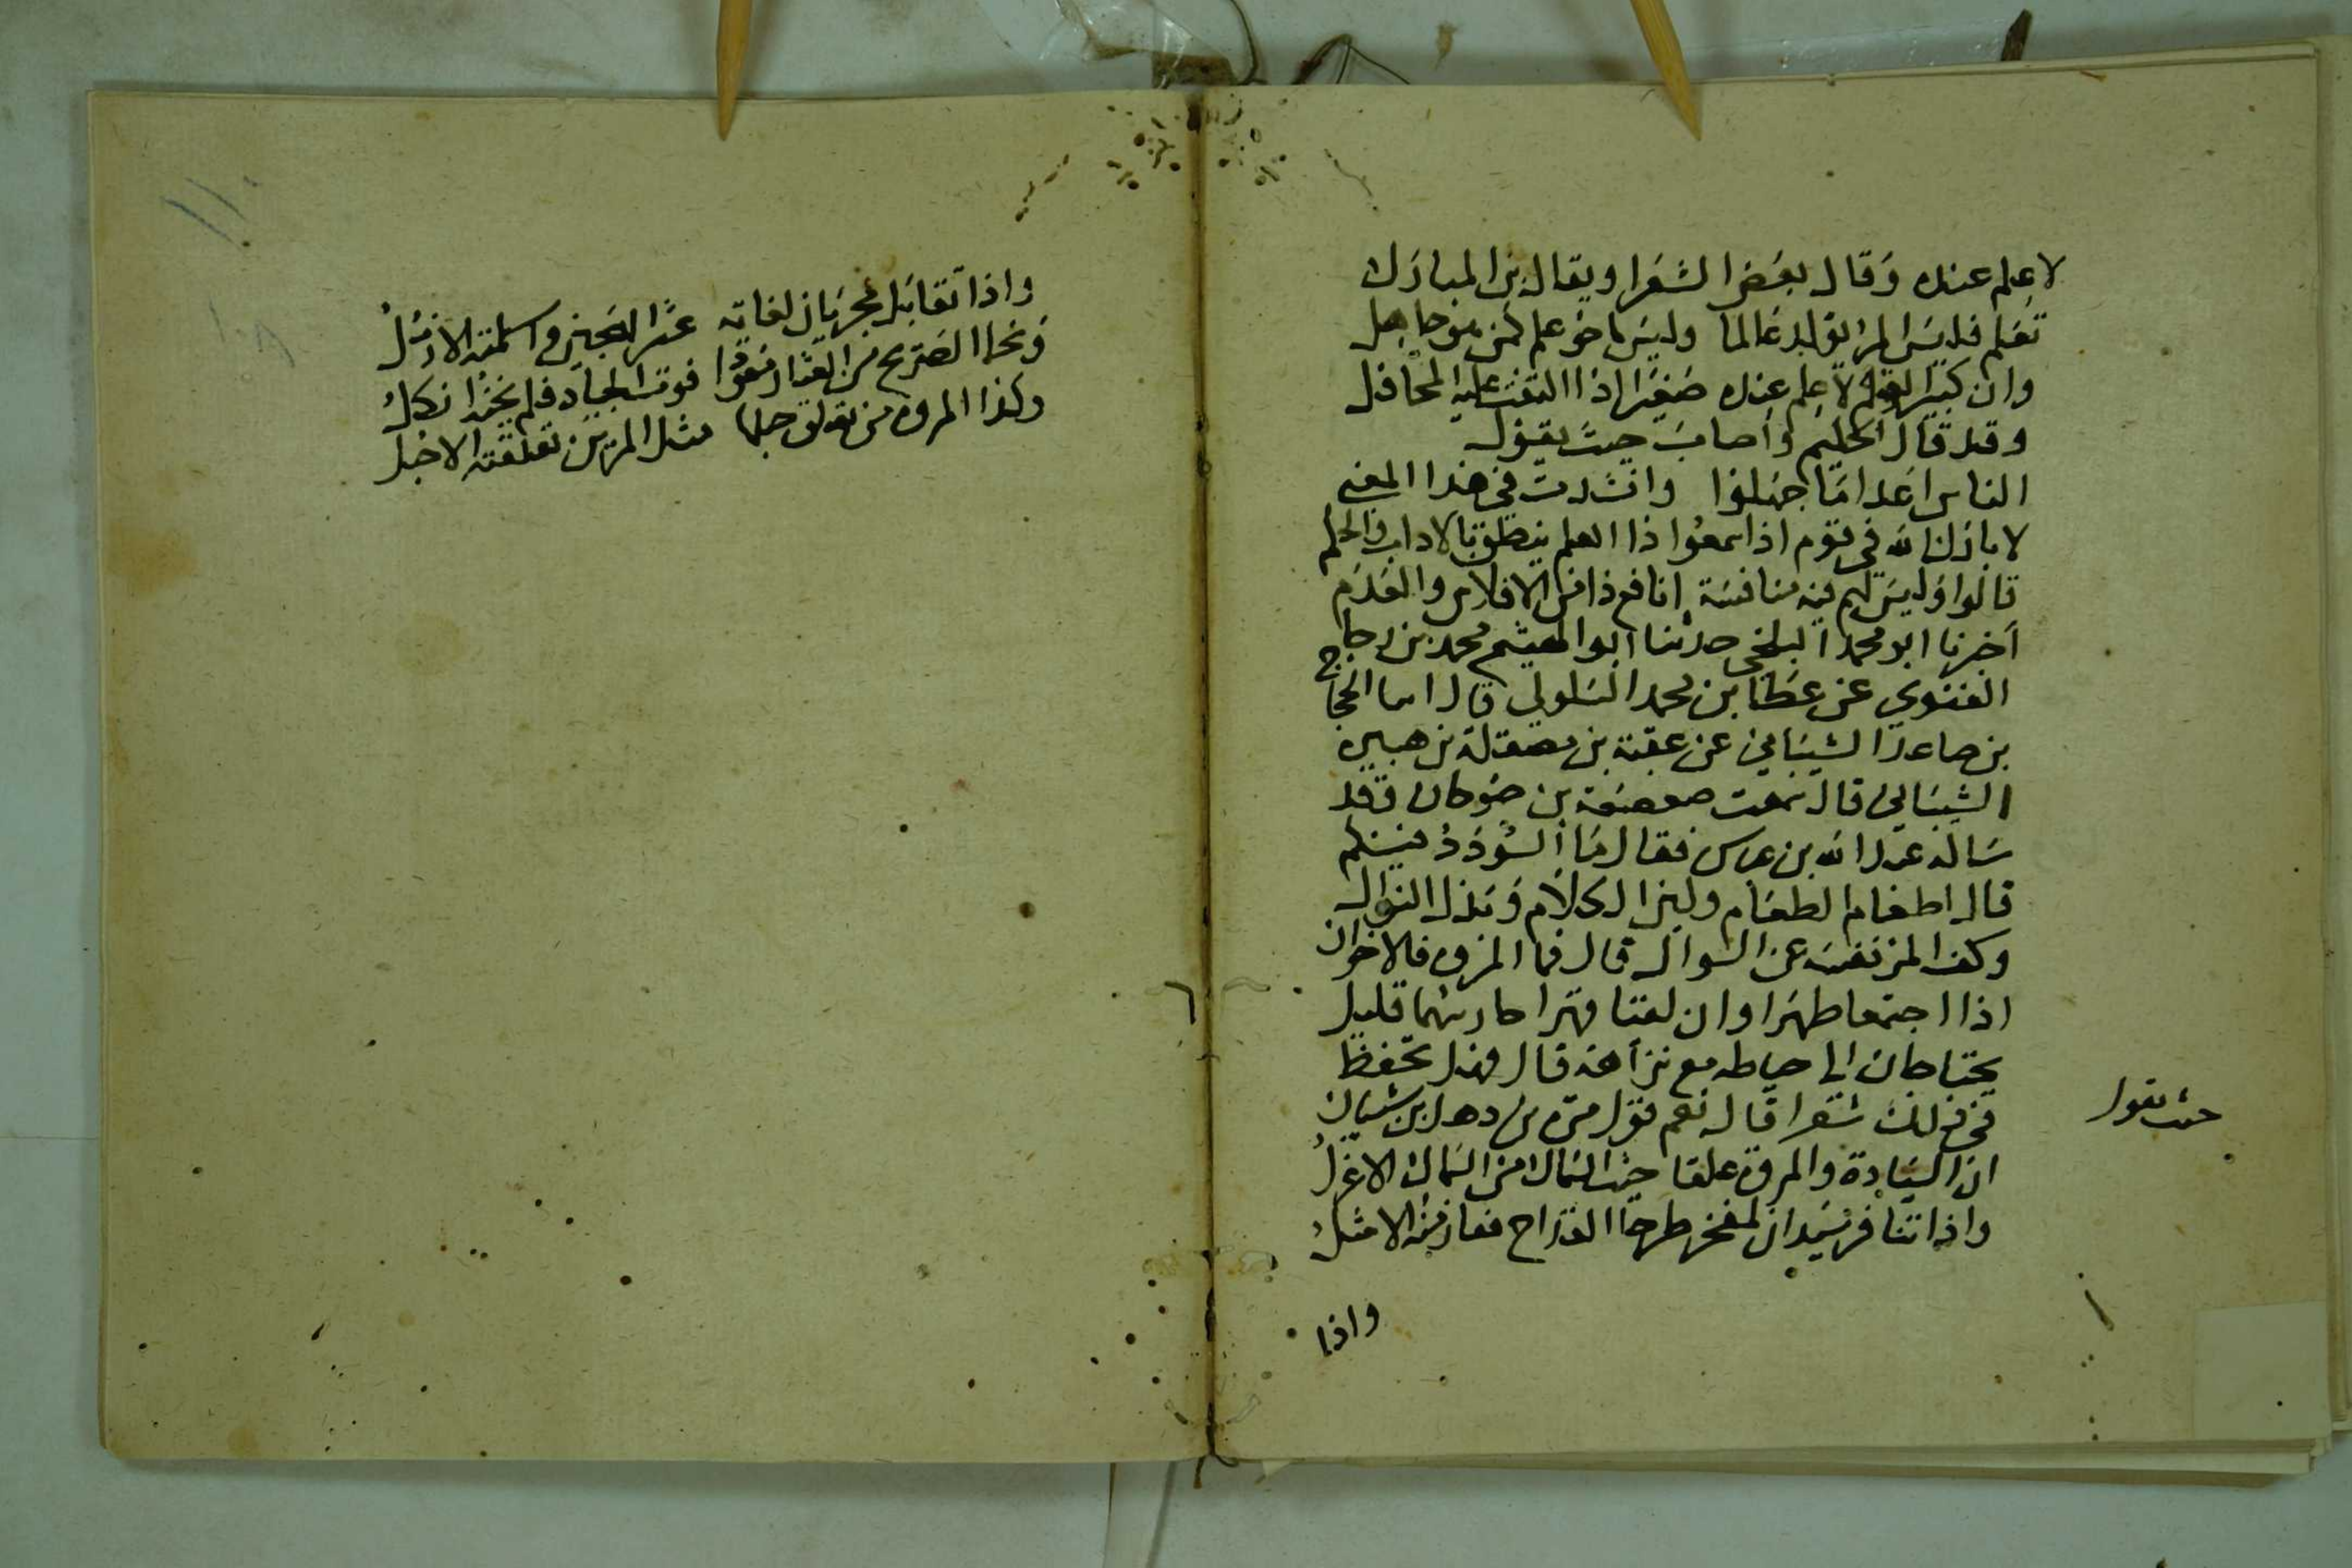 لا علم عنده وقال بعض الشعرا ويقال بن المبارك
تعلم فليس المرء يولد عالما وليس اخو علم كمن هو جاهل
وان كبير القوم لا علم عنده صغيرا اذا التفت عليه المحافل
وقد قال الحكيم واصاب حيث يقول
الناس اعدا ما جهلوا وانشدت في هذا المعنى
لا بارك الله في قوم اذا سمعوا ذا العلم ينطق بالاداب والحكم
قالوا وليس لهم فيه منافسة انافع ذا من الافلاس والعدم
اخبرنا ابو محمد البلخي حدثنا ابو الهيثم محمد بن رجا
الغنوي عن عطا بن محمد السلولي قال اما الحجاج
بن صاعد الشيباني عن عقبة بن مصقلة بن هبيره
الشيباني قال سمعت صعصعة بن صوحان وقد
ساله عبد الله بن عباس فقال ما السودد فيكم
قال اطعام الطعام ولين الكلام وبذل النوال
وكف المرء نفسه عن السوال قال فما المروه قال اخوان
اذا اجتمعا ظهرا وان لقيا قهرا حارسهما قليل
يحتاجان الى حياطه مع نزاهة قال فهل تحفظ
في ذلك شعرا قال نعم قول مرة بن ذهل بن شيبان
حيث يقول
ان السيادة والمروة علقا حيث السماك من السماك الاعزل
واذا تنافر سيدان لمفخر طرحا القداح ففاز منه الامثل
واذا
واذا تقابل مجريان لغاية عثر الهجين واسلمته الارجل
ونجا الصريح من العثار معودا فوت الجياد فلم يخنه انكل
وكذا المروة من تعلق حبلها مثل المزن تعلقته الاحبل